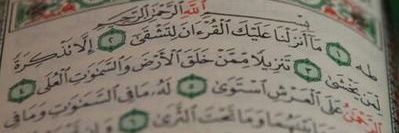 بِسْمِ اللَّهِ الرَّحْمَٰنِ الرَّحِيمِ
طه ١ مَا أَنزَلْنَا عَلَيْكَ الْقُرْءَانَ لِتَشْقَىٰ ٢ إِلَّا تَذْكِرَةً
لِّمَن يَخْشَىٰ ٣ تَنزِيلًا مِّمَّنْ خَلَقَ الْأَرْضَ وَالسَّمَٰوَٰتِ الْعُلَى ٤
الرَّحْمَٰنُ عَلَى الْعَرْشِ اسْتَوَىٰ ٥ لَهُ مَا فِي السَّمَٰوَٰتِ وَمَا فِي
وَمَا بَيْنَهُمَا وَمَا تَحْتَ الثَّرَىٰ ٦ وَإِن